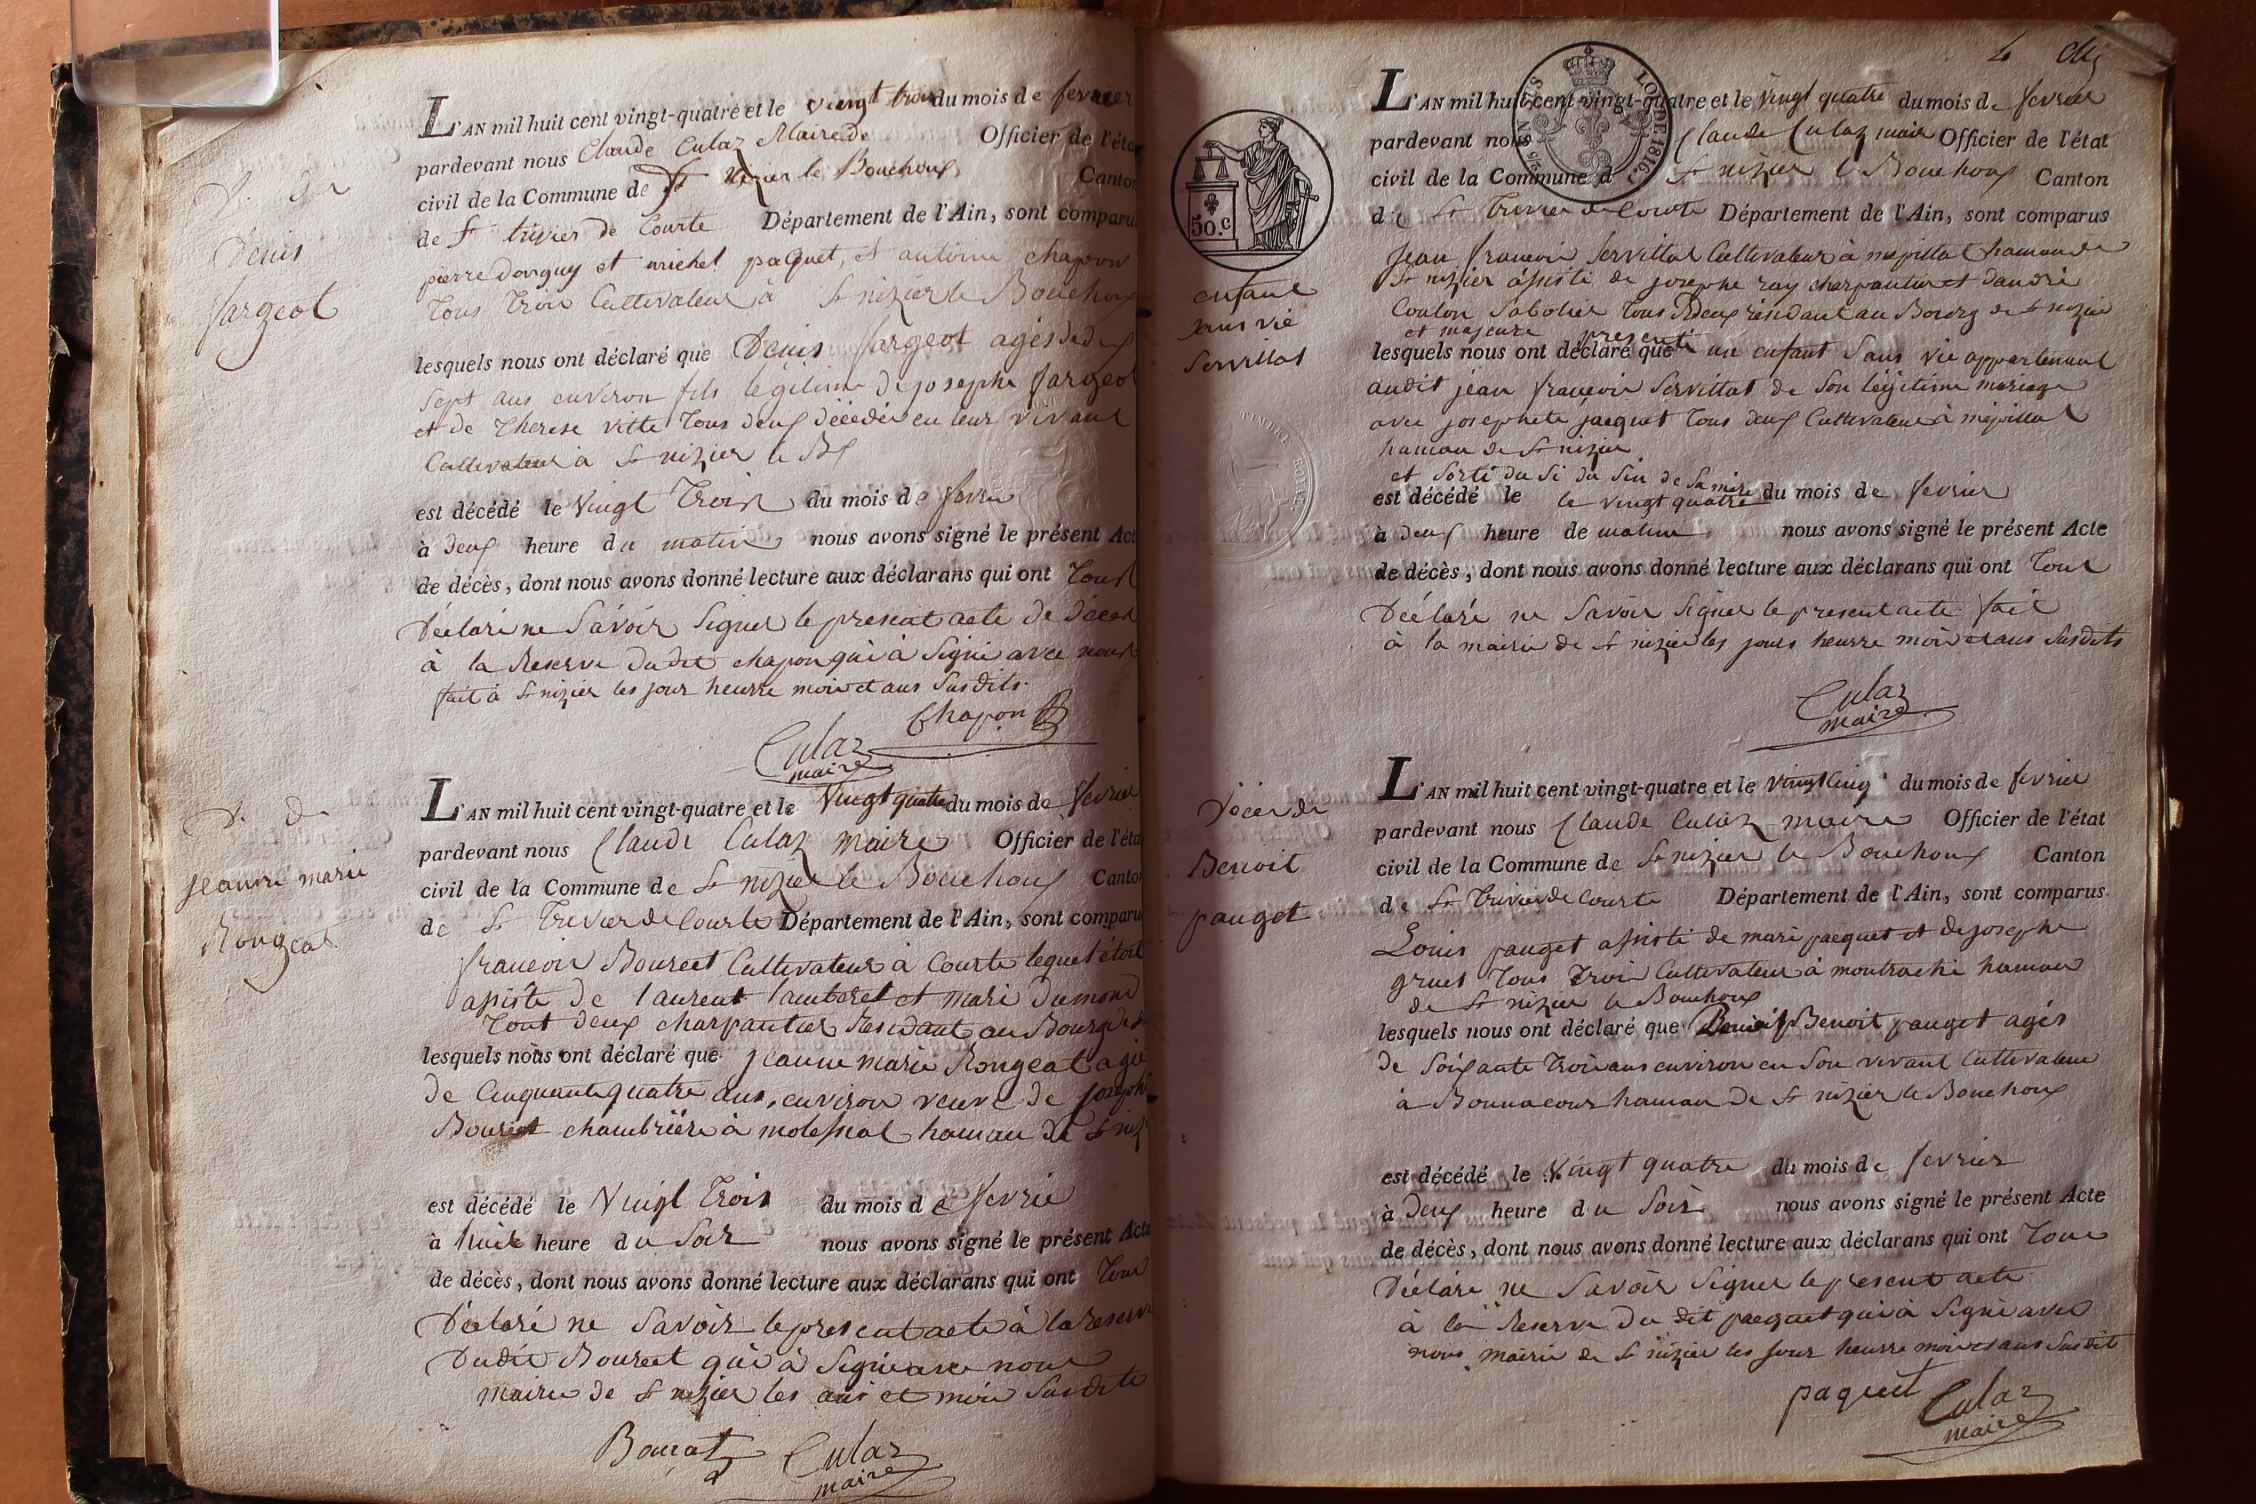 D. de
Denis
fargeot
L'AN mil huit cent vingt-quatre et le vingt trois du mois de fevrier
pardevant nous Claude Culaz Maire de Officier de l'état
civil de la Commune de St nizier le Bouchoux Canton
de St trivier de Courte Département de l'Ain, sont comparu
pierre donguy et michel paquet, et antoine chapon
tous trois Cultivateur à St nizier le Bouchoux
lesquels nous ont déclaré que Denis fargeot agés de dix
sept ans environ fils legitime de josephe fargeot
et de therese vitte tous deux décédée en leur vivant
Cultivateur a St nizier le Bx
est décédé le vingt trois du mois de fevrie
à deux heure du matin nous avons signé le présent Act
de décès, dont nous avons donné lecture aux déclarans qui ont tous
Déclaré ne Savoir Signer le present acte de déces
à la Reserve dudit chapon qui à Signé avec nous
fait à St nizier les jour heurre mois et ans Susdits.
Chapon
Culaz
maire
D. de
jeanne marie
Rongeat
L'AN mil huit cent vingt-quatre et le Vingt quatre du mois de fevrier
pardevant nous Claude Culaz maire Officier de l'éta
civil de la Commune de St nizier le Bouchoux Canto
de St Trivier de Courte Département de l'Ain, sont comparu
francois Boureet Cultivateur à Courte lequel étoit
asisté de laurent lamberet et marie Dumond
tout deux charpantier Residant au Bourg de
lesquels nous ont déclaré que jeanne marie Rongeat agé
de Cinquante quatre ans, environ veuve de joseph
Bouret chambriere à molessiat hamau de St niz
est décédé le Vingt trois du mois de fevrie
à huit heure du Soir nous avons signé le présent Acte
de décès, dont nous avons donné lecture aux déclarans qui ont tous
Déclaré ne Savoir le present acte à la reserve
Dudit Boureet qui à Signé avec nous
mairie de St nizier les ans et mois Susdits
Bourat Culaz
maire
4
L'AN mil huit cent vingt-quatre et le vingt quatre du mois de fevrier
pardevant nous Claude Culaz maire Officier de l'état
civil de la Commune d St nizier le Bouchoux Canton
de St Trivier de Courte Département de l'Ain, sont comparus
LOI DE 1816.
50.C
enfant
sans vie
Servillat
jean francois Servillat Cultivateur à mépillat hamau de
St nizier asisté de josephe ray charpantier et d'andré
Coulon Sabotier tous deux résidant au Bourg de St nizier
et majeure presenté
lesquels nous ont déclaré que un enfant Sans vie appartenant
audit jean francois Servillat de Son légitime mariage
avec josephete jacquet tous deux Cultivateur à mépillat
hamau de St nizier
et Sorti du Si du Sin de Sa mère
est décédé le le vingt quatre du mois de fevrier
à deux heure de matin nous avons signé le présent Acte
de décès, dont nous avons donné lecture aux déclarans qui ont tout
Déclaré ne Savoir Signer le present acte fait
à la mairie de St nizier les jours heurre mois et ans Susdits
Culaz
maire
Décès de
Benoit
pauget
L'AN mil huit cent vingt-quatre et le vingt Cinq du mois de fevrier
pardevant nous Claude Culaz maire Officier de l'état
civil de la Commune de St nizier le Bouchoux Canton
de St Trivier de Courte Département de l'Ain, sont comparus
Louis pauget assisté de marie pacquet et de josephe
gruet tous trois Cultivateur à montrachi hamau
de St nizier le Bouchoux
lesquels nous ont déclaré que Benoit pauget agés
de Soixante trois ans environ en Son vivant Cultivateur
à Bonnacour hamau de St nizier le Bouchoux
est décédé le Vingt quatre du mois de fevrier
à deux heure du Soir nous avons signé le présent Acte
de décès, dont nous avons donné lecture aux déclarans qui ont tous
Déclaré ne Savoir Signer le present acte
à la Reserve du dit pacquet qui à Signé avec
nous mairie de St nizier les jour heurre mois et ans Susdit
paquet Culaz
maire